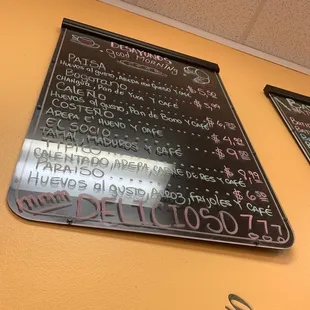 DESAYUNOS
Good MORNING
PAISA
Huevos al gusto, Arepa con Queso y Café
Bogotano
Changua, Pan de Yuca y café
CALEÑO
Huevos al gusto, Pan de Bono y Café
COSTEÑO
AREPA E' HUEVO y CAFÉ
EL SOCIO
TAMAL, MADUROS y CAFÉ
TIPICO
CALENTADO, AREPA, CARNE DE RES y CAFÉ
PARAISO
HUEVOS al gusto, ARROZ, FRIJOLES y CAFÉ
DELICIOSO